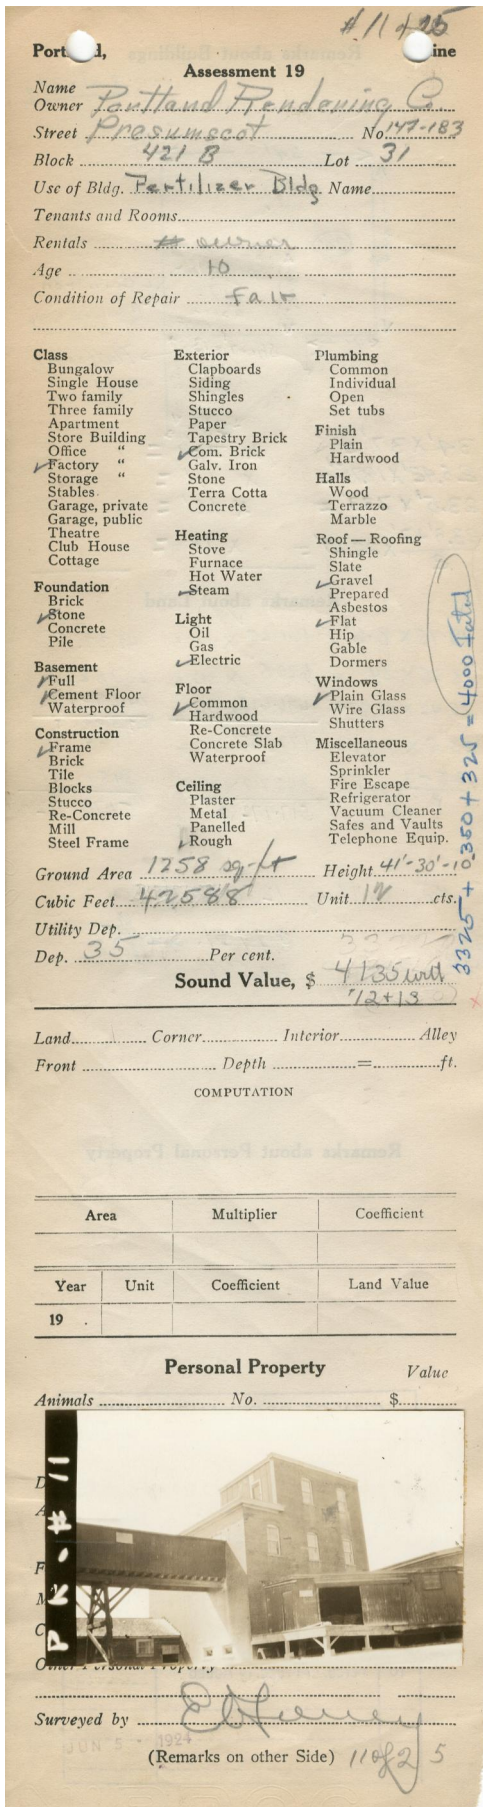 # 11 of 25
Portland, ine
Assessment 19
Name
Owner Portland Rendering Co.
Street Presumscot No 147-183
Block 421 B Lot 31
Use of Bldg. Fertilizer Bldg Name
Tenants and Rooms
Rentals owner
Age 10
Condition of Repair fair
Class
Bungalow
Single House
Two family
Three family
Apartment
Store Building
Office "
✓Factory "
Storage "
Stables
Garage, private
Garage, public
Theatre
Club House
Cottage
Foundation
Brick
✓Stone
Concrete
Pile
Basement
✓Full
✓Cement Floor
Waterproof
Construction
✓Frame
Brick
Tile
Blocks
Stucco
Re-Concrete
Mill
Steel Frame
Exterior
Clapboards
Siding
Shingles
Stucco
Paper
Tapestry Brick
✓Com. Brick
Galv. Iron
Stone
Terra Cotta
Concrete
Heating
Stove
Furnace
Hot Water
✓Steam
Light
Oil
Gas
✓Electric
Floor
✓Common
Hardwood
Re-Concrete
Concrete Slab
Waterproof
Ceiling
Plaster
Metal
Panelled
✓Rough
Plumbing
Common
Individual
Open
Set tubs
Finish
Plain
Hardwood
Halls
Wood
Terrazzo
Marble
Roof — Roofing
Shingle
Slate
✓Gravel
Prepared
Asbestos
✓Flat
Hip
Gable
Dormers
Windows
✓Plain Glass
Wire Glass
Shutters
Miscellaneous
Elevator
Sprinkler
Fire Escape
Refrigerator
Vacuum Cleaner
Safes and Vaults
Telephone Equip.
3325 + 350 + 325 = 4000 Total
Ground Area 1258 sq-ft Height 41'-30'-10
Cubic Feet 42588 Unit 12 cts.
Utility Dep.
Dep. 35 Per cent.
Sound Value, $ 4135 with
#12+13
Land Corner Interior Alley
Front Depth = ft.
COMPUTATION
Area Multiplier Coefficient
Year Unit Coefficient Land Value
19 .
Personal Property Value
Animals No. $
P R. # 11
Other Personal Property
Surveyed by
JUN 5 - 1924
(Remarks on other Side) 11 of 25